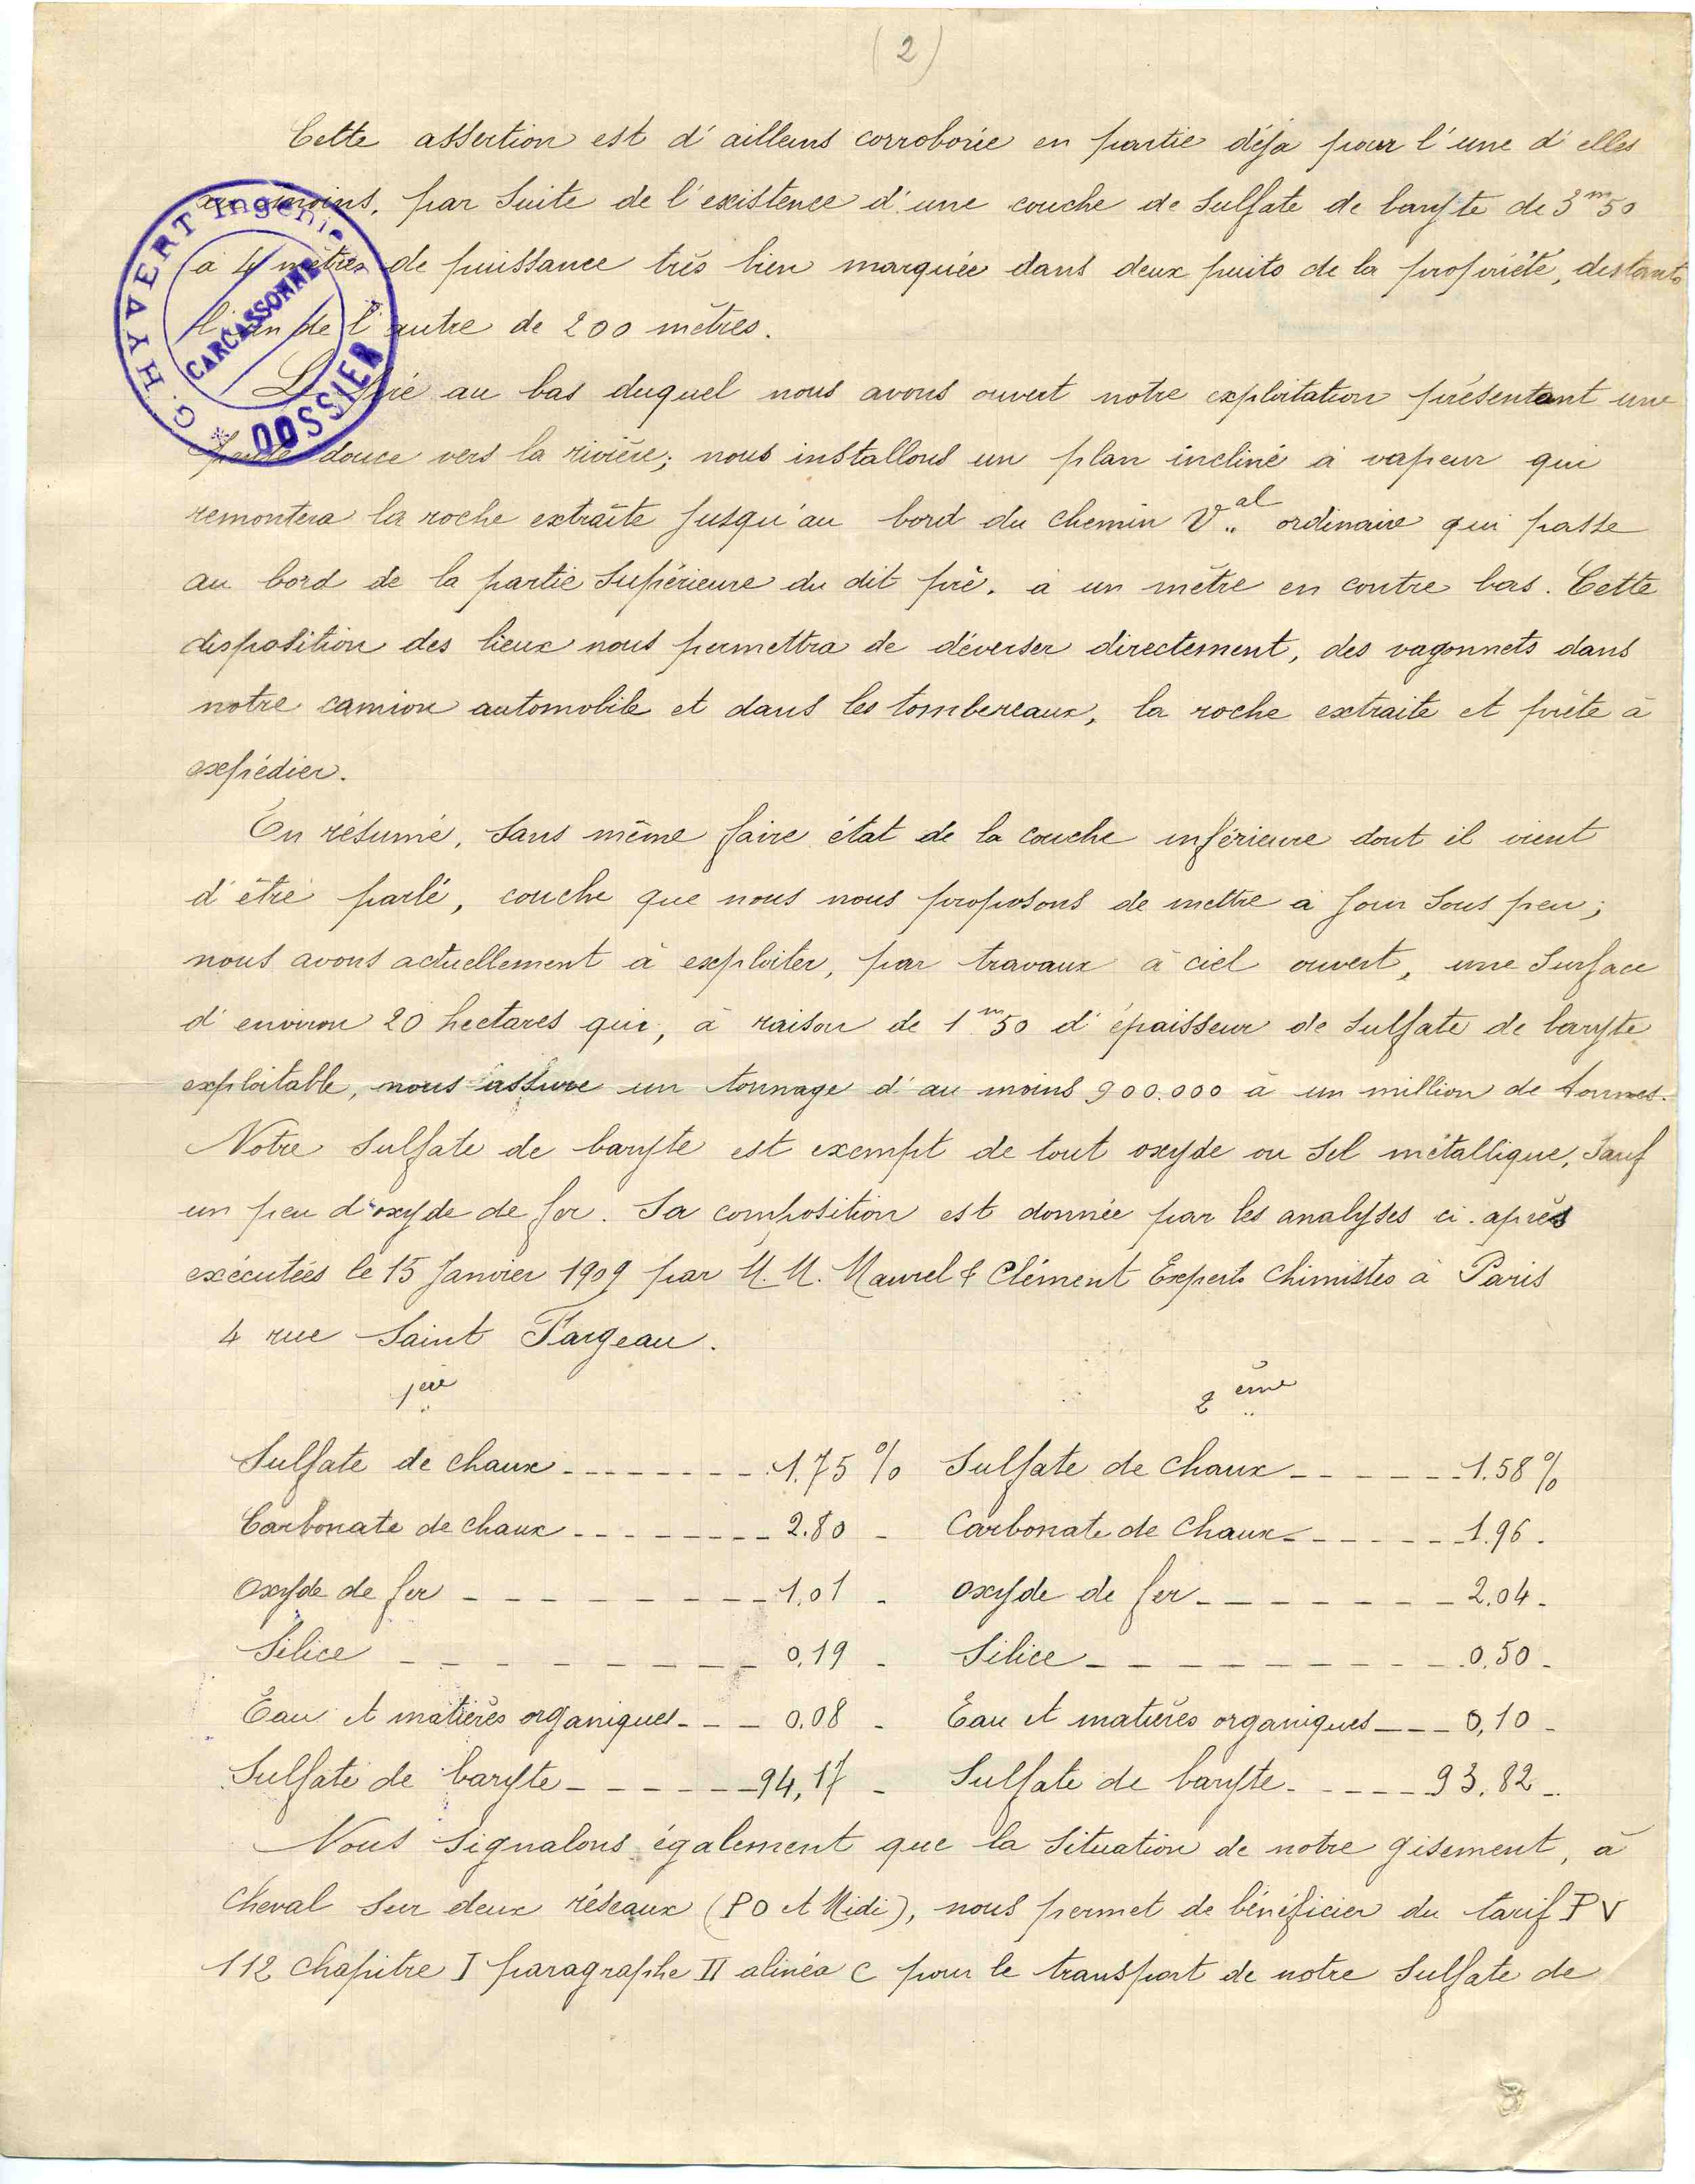 (2)
Cette assertion est d'ailleurs corroborée en partie déjà pour l'une d'elles
au moins, par suite de l'existence d'une couche de sulfate de baryte de 3m50
à 4 mètres de puissance très bien marquée dans deux puits de la propriété, distants
l'un de l'autre de 200 mètres.
G. HYVERT Ingénieur
CARCASSONNE
* DOSSIER
Le pré au bas duquel nous avons ouvert notre exploitation présentant une
pente douce vers la rivière; nous installons un plan incliné à vapeur qui
remontera la roche extraite jusqu'au bord du chemin Val ordinaire qui passe
au bord de la partie supérieure du dit pré, à un mètre en contre bas. Cette
disposition des lieux nous permettra de déverser directement, des vagonnets dans
notre camion automobile et dans les tombereaux, la roche extraite et prête à
expédier.
En résumé, sans même faire état de la couche inférieure dont il vient
d'être parlé, couche que nous nous proposons de mettre à jour sous peu;
nous avons actuellement à exploiter, par travaux à ciel ouvert, une surface
d'environ 20 hectares qui, à raison de 1m50 d'épaisseur de sulfate de baryte
exploitable, nous assure un tonnage d'au moins 900.000 à un million de tonnes.
Notre sulfate de baryte est exempt de tout oxyde ou sel métallique, sauf
un peu d'oxyde de fer. Sa composition est donnée par les analyses ci-après
exécutées le 15 Janvier 1909 par M.M. Maurel & Clément Experts Chimistes à Paris
4 rue Saint Fargeau.
1ère 2ème
Sulfate de chaux 1.75 % Sulfate de Chaux 1.58 %
Carbonate de chaux 2.80 - Carbonate de Chaux 1.96 -
Oxyde de fer 1,01 - Oxyde de fer 2,04 -
Silice 0,19 - Silice 0,50 -
Eau et matières organiques 0,08 - Eau et matières organiques 0,10 -
Sulfate de baryte 94,17 - Sulfate de baryte 93,82 -
Nous signalons également que la situation de notre gisement, à
cheval sur deux réseaux (PO et Midi), nous permet de bénéficier du tarif P V
112 Chapitre I paragraphe II alinéa C pour le transport de notre sulfate de